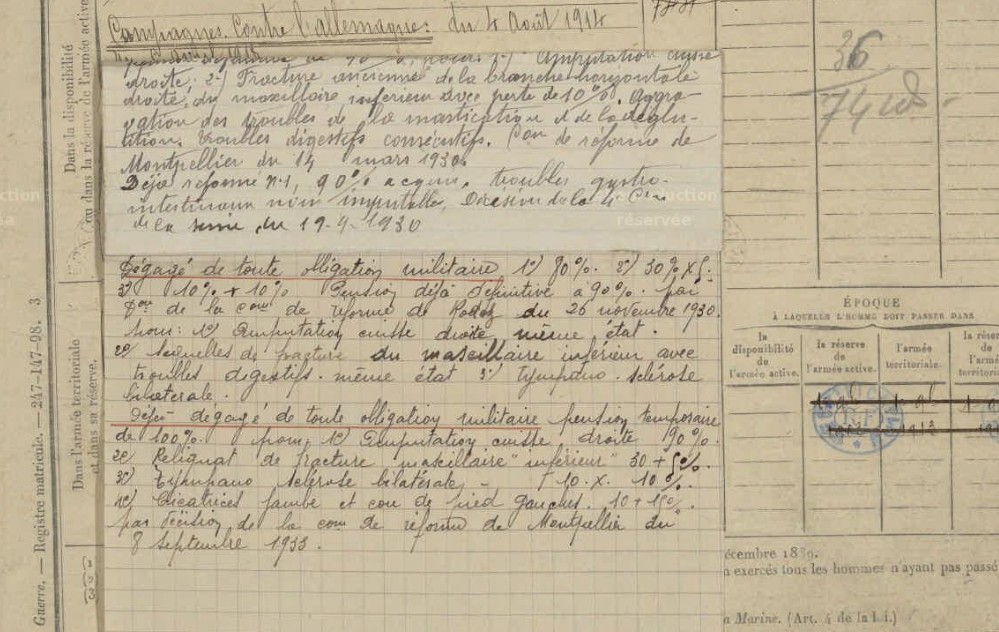 Campagnes. Contre l'allemagne: du 4 Août 1914
Amputation cuisse
droite; 2°) Fracture ancienne de la branche horizontale
droite, du maxillaire inférieur avec perte de 10%. Aggra-
vation des troubles de la mastication et de la déglu-
tition. troubles digestifs consécutifs. Con de réforme de
Montpellier du 14 mars 1930.
Déjà réformé n°1, 90% acquis, troubles gastro-
intestinaux non imputable. Décision de la 4e Con
de la Seine du 19-9-1930
Dégagé de toute obligation militaire 1°) 80%. 2°) 30% + 5.
3°) 10% + 10% Pension déjà définitive à 90% par
Don de la Con de réforme de Rodez du 26 novembre 1930.
pour: 1°) Amputation cuisse droite même état.
2°) Séquelles de fracture du maxillaire inférieur avec
troubles digestifs. même état 3°) tympano-sclérose
bilatérale.
Déjà dégagé de toute obligation militaire pension temporaire
de 100%. pour: 1°) Amputation cuisse droite 90%.
2°) Reliquat de fracture maxillaire inférieur 30 + 5%.
3°) Tympano sclérose bilatérale - 10. x. 10%.
Cicatrices jambe et cou de pied gauches. 10 + 15%.
par décision de la com de réforme de Montpellier du
8 Septembre 1933.
36
74
Dans la disponibilité
ou dans la réserve de l'armée active
Dans l'armée territoriale
et dans sa réserve.
Guerre. — Registre matricule. — 247-147-98. 3
(1
(2
(3
réservée
ÉPOQUE
À LAQUELLE L'HOMME DOIT PASSER DANS
la disponibilité de l'armée active.
la réserve de l'armée active.
l'armée territoriale.
la réser
de l'armée
territoria
décembre 1889.
n exercés tous les hommes n'ayant pas passé
a Marine. (Art. 4 de la loi.)